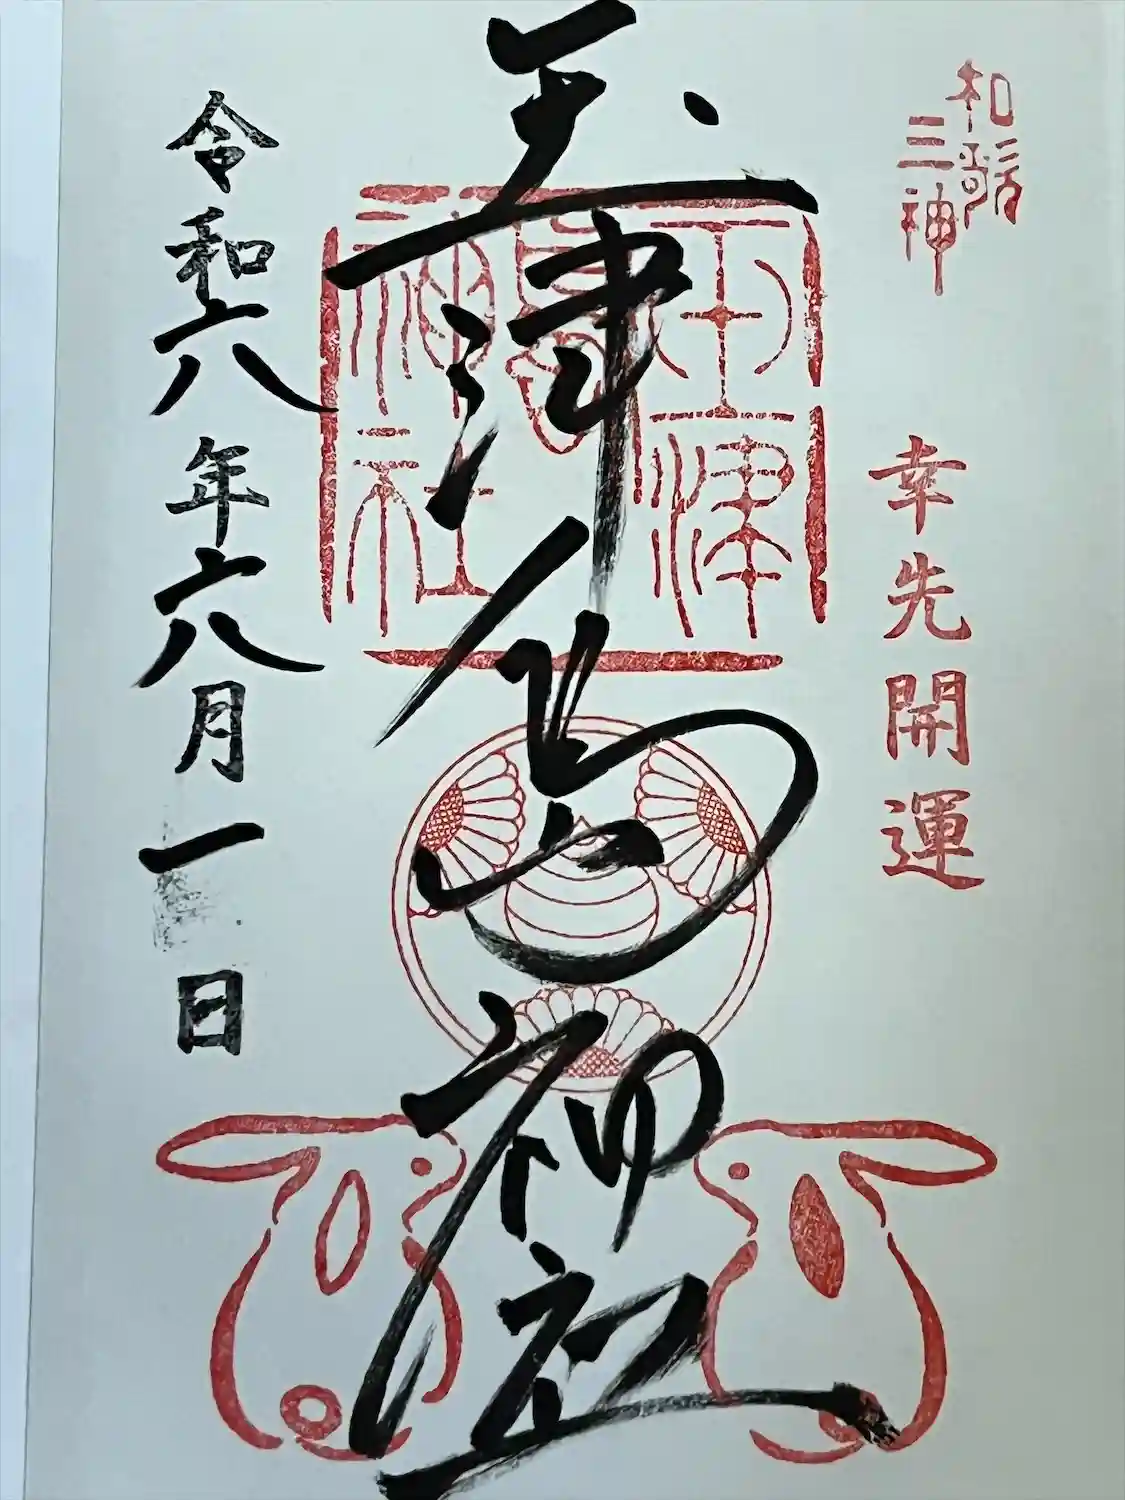 和歌
三神
幸先開運
玉津島神社
玉津
島
神社
令和六年六月一日